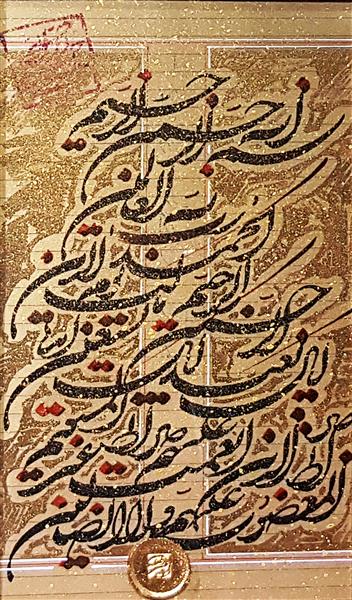 بسم الله الرحمن الرحیم
الحمد لله رب العالمین
الرحمن الرحیم مالک یوم الدین
ایاک نعبد و ایاک نستعین
اهدنا الصراط المستقیم
صراط الذین انعمت علیهم غیر
المغضوب علیهم ولا الضالین